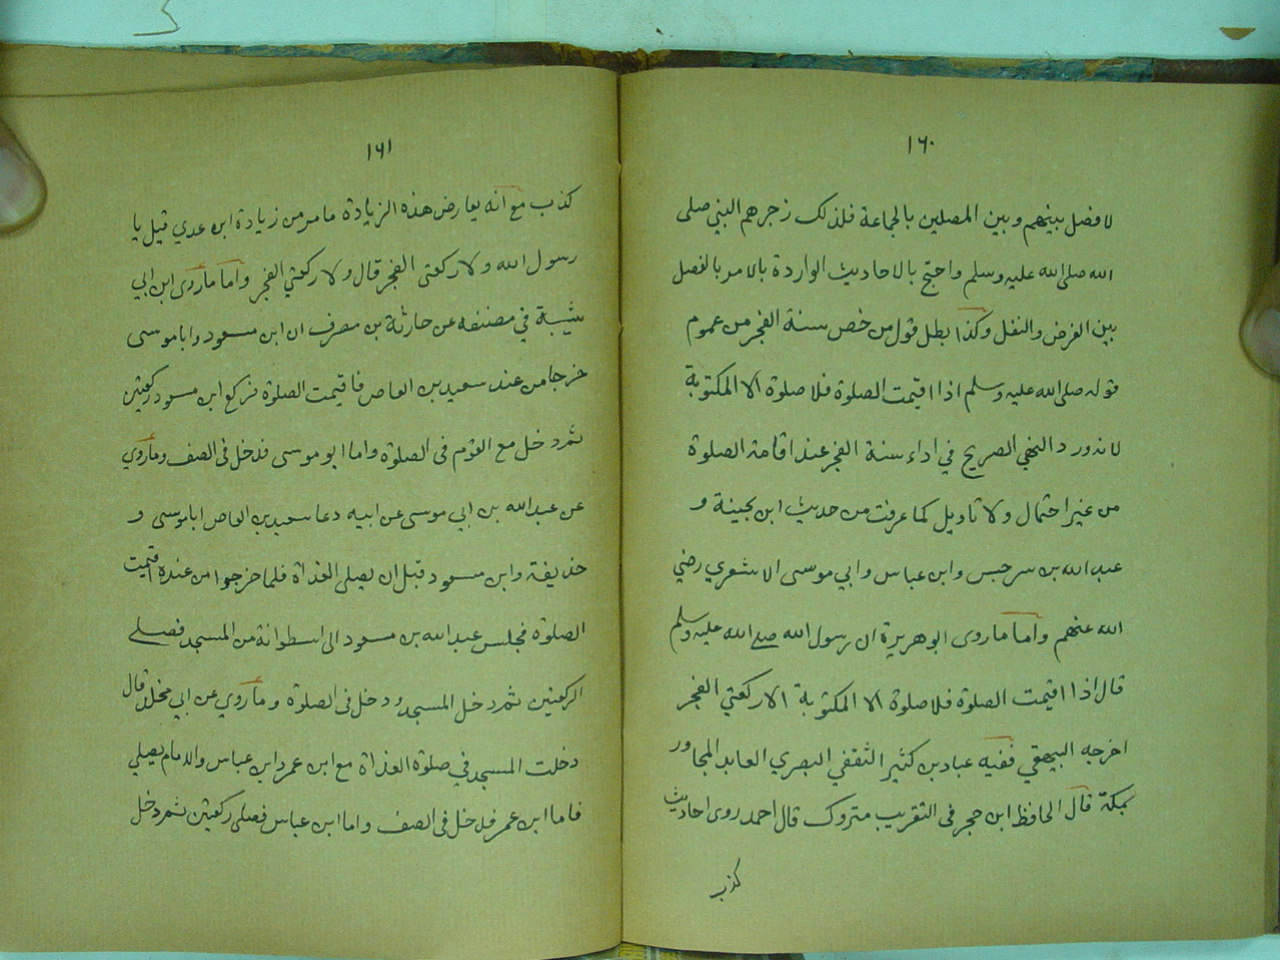 ١٦٠
لا فصل بينهم وبين المصلين بالجماعة فلذلك زجرهم النبي صلى
الله صلى الله عليه وسلم واحتج بالاحاديث الواردة بالامر بالفصل
بين الفرض والنفل وكذا بطل قول من خص سنة الفجر من عموم
قوله صلى الله عليه وسلم اذا اقيمت الصلوة فلا صلوة الا المكتوبة
لانه ورد النهي الصريح في اداء سنة الفجر عند اقامة الصلوة
من غير احتمال ولا تاويل كما عرفت من حديث ابن بحينة و
عبد الله بن سرجس وابن عباس وابي موسى الاشعري رضي
الله عنهم واما ماروى ابو هريرة ان رسول الله صلى الله عليه وسلم
قال اذا اقيمت الصلوة فلا صلوة الا المكتوبة الا ركعتي الفجر
اخرجه البيهقي ففيه عباد بن كثير الثقفي البصري العابد المجاور
بمكة قال الحافظ ابن حجر في التقريب متروك قال احمد روى احاديث
كذب
١٦١
كذب مع انه يعارض هذه الزيادة ما مر من زيادة ابن عدي قيل يا
رسول الله ولا ركعتى الفجر قال ولا ركعتي الفجر واما ماروى ابن ابي
شيبة في مصنفه عن حارثة بن مصرف ان ابن مسعود وابا موسى
خرجا من عند سعيد بن العاص فاقيمت الصلوة فركع ابن مسعود ركعتين
ثم دخل مع القوم فى الصلوة واما ابو موسى فدخل فى الصف وماروي
عن عبد الله بن ابي موسى عن ابيه دعا سعيد بن العاص ابا موسى و
حذيفة وابن مسعود قبل ان يصلى الغداة فلما خرجوا من عنده اقيمت
الصلوة فجلس عبد الله بن مسعود الى اسطوانة من المسجد فصلى
الركعتين ثم دخل المسجد ودخل فى الصلوة وماروي عن ابي مخلد قال
دخلت المسجد في صلوة الغداة مع ابن عمر وابن عباس والامام يصلي
فاما ابن عمر فدخل فى الصف واما ابن عباس فصلى ركعتين ثم دخل